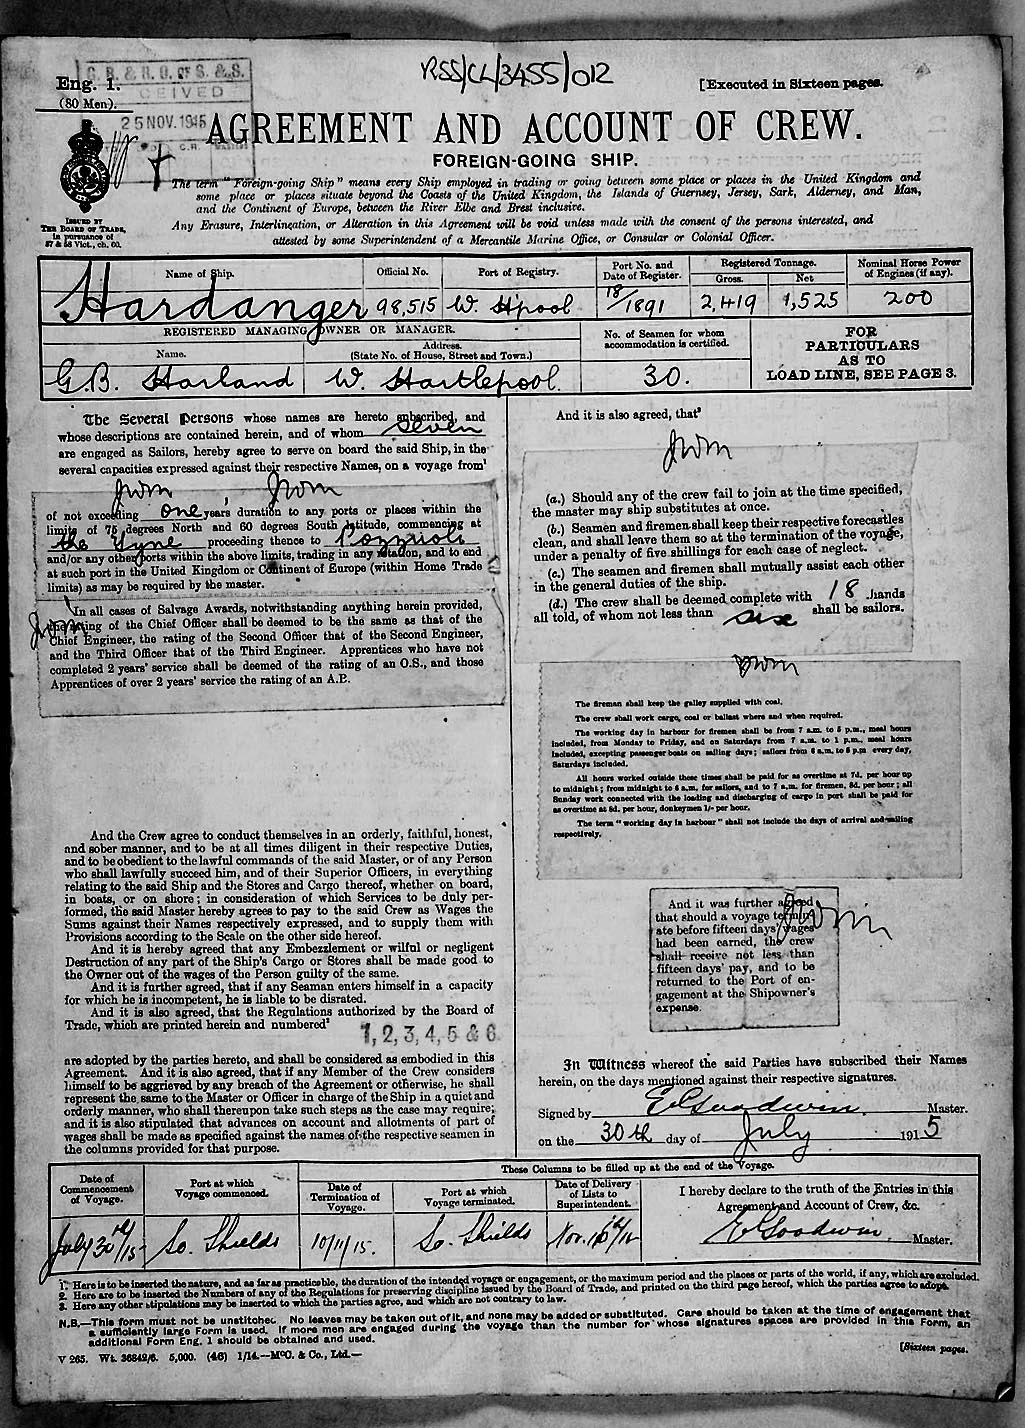 RSS/CL/3455/012
G. R. & R. O. OF S. & S.
CEIVED
25 NOV. 1915
Eng. 1.
(80 Men).
[Executed in Sixteen pages.
AGREEMENT AND ACCOUNT OF CREW.
FOREIGN-GOING SHIP.
ISSUED BY
THE BOARD OF TRADE,
in pursuance of
57 & 58 Vict., ch. 60.
The term "Foreign-going Ship" means every Ship employed in trading or going between some place or places in the United Kingdom and
some place or places situate beyond the Coasts of the United Kingdom, the Islands of Guernsey, Jersey, Sark, Alderney, and Man,
and the Continent of Europe, between the River Elbe and Brest inclusive.
Any Erasure, Interlineation, or Alteration in this Agreement will be void unless made with the consent of the persons interested, and
attested by some Superintendent of a Mercantile Marine Office, or Consular or Colonial Officer.
Name of Ship.
Official No.
Port of Registry.
Port No. and
Date of Register.
Registered Tonnage.
Gross.
Net
Nominal Horse Power
of Engines (if any).
Hardanger
98,515
W. H'pool
18/1891
2,419
1,525
200
REGISTERED MANAGING OWNER OR MANAGER.
Name.
Address.
(State No. of House, Street and Town.)
No. of Seamen for whom
accommodation is certified.
FOR
PARTICULARS
AS TO
LOAD LINE, SEE PAGE 3.
G.B. Harland
W. Hartlepool.
30.
The Several Persons whose names are hereto subscribed, and
whose descriptions are contained herein, and of whom seven
are engaged as Sailors, hereby agree to serve on board the said Ship, in the
several capacities expressed against their respective Names, on a voyage from¹
of not exceeding one years duration to any ports or places within the
limits of 75 degrees North and 60 degrees South latitude, commencing at
the Tyne proceeding thence to Pozzuoli
and/or any other ports within the above limits, trading in any rotation, and to end
at such port in the United Kingdom or Continent of Europe (within Home Trade
limits) as may be required by the master.
In all cases of Salvage Awards, notwithstanding anything herein provided,
rating of the Chief Officer shall be deemed to be the same as that of the
Chief Engineer, the rating of the Second Officer that of the Second Engineer,
and the Third Officer that of the Third Engineer. Apprentices who have not
completed 2 years' service shall be deemed of the rating of an O.S., and those
Apprentices of over 2 years' service the rating of an A.B.
And the Crew agree to conduct themselves in an orderly, faithful, honest,
and sober manner, and to be at all times diligent in their respective Duties,
and to be obedient to the lawful commands of the said Master, or of any Person
who shall lawfully succeed him, and of their Superior Officers, in everything
relating to the said Ship and the Stores and Cargo thereof, whether on board,
in boats, or on shore; in consideration of which Services to be duly per-
formed, the said Master hereby agrees to pay to the said Crew as Wages the
Sums against their Names respectively expressed, and to supply them with
Provisions according to the Scale on the other side hereof.
And it is hereby agreed that any Embezzlement or wilful or negligent
Destruction of any part of the Ship's Cargo or Stores shall be made good to
the Owner out of the wages of the Person guilty of the same.
And it is further agreed, that if any Seaman enters himself in a capacity
for which he is incompetent, he is liable to be disrated.
And it is also agreed, that the Regulations authorized by the Board of
Trade, which are printed herein and numbered²
1, 2, 3, 4, 5 & 6
are adopted by the parties hereto, and shall be considered as embodied in this
Agreement. And it is also agreed, that if any Member of the Crew considers
himself to be aggrieved by any breach of the Agreement or otherwise, he shall
represent the same to the Master or Officer in charge of the Ship in a quiet and
orderly manner, who shall thereupon take such steps as the case may require;
and it is also stipulated that advances on account and allotments of part of
wages shall be made as specified against the names of the respective seamen in
the columns provided for that purpose.
And it is also agreed, that³
(a.) Should any of the crew fail to join at the time specified,
the master may ship substitutes at once.
(b.) Seamen and firemen shall keep their respective forecastles
clean, and shall leave them so at the termination of the voyage,
under a penalty of five shillings for each case of neglect.
(c.) The seamen and firemen shall mutually assist each other
in the general duties of the ship.
(d.) The crew shall be deemed complete with 18 hands
all told, of whom not less than six shall be sailors.
The fireman shall keep the galley supplied with coal.
The crew shall work cargo, coal or ballast where and when required.
The working day in harbour for firemen shall be from 7 a.m. to 5 p.m., meal hours
included, from Monday to Friday, and on Saturdays from 7 a.m. to 1 p.m., meal hours
included, excepting passenger boats on sailing days; sailors from 6 a.m. to 5 p.m. every day,
Saturdays included.
All hours worked outside these times shall be paid for as overtime at 7d. per hour up
to midnight; from midnight to 6 a.m. for sailors, and to 7 a.m. for firemen, 8d. per hour; all
Sunday work connected with the loading and discharging of cargo in port shall be paid for
as overtime at 8d. per hour, donkeymen 1/- per hour.
The term "working day in harbour" shall not include the days of arrival and sailing
respectively.
And it was further agreed
that should a voyage termin-
ate before fifteen days' wages
had been earned, the crew
shall receive not less than
fifteen days' pay, and to be
returned to the Port of en-
gagement at the Shipowner's
expense.
In Witness whereof the said Parties have subscribed their Names
herein, on the days mentioned against their respective signatures.
Signed by E Goodwin. Master.
on the 30th day of July 1915
These Columns to be filled up at the end of the Voyage.
Date of
Commencement
of Voyage.
Port at which
Voyage commenced.
Date of
Termination of
Voyage.
Port at which
Voyage terminated.
Date of Delivery
of Lists to
Superintendent.
I hereby declare to the truth of the Entries in this
Agreement and Account of Crew, &c.
July 30th/15
So. Shields
10/11/15.
So. Shields
E Goodwin. Master.
1. Here is to be inserted the nature, and as far as practicable, the duration of the intended voyage or engagement, or the maximum period and the places or parts of the world, if any, which are excluded.
2. Here are to be inserted the Numbers of any of the Regulations for preserving discipline issued by the Board of Trade, and printed on the third page hereof, which the parties agree to adopt.
3. Here any other stipulations may be inserted to which the parties agree, and which are not contrary to law.
N.B.—This form must not be unstitched. No leaves may be taken out of it, and none may be added or substituted. Care should be taken at the time of engagement that
a sufficiently large Form is used. If more men are engaged during the voyage than the number for whose signatures spaces are provided in this Form, an
additional Form Eng. 1 should be obtained and used.
V 265. Wt. 36842/6. 5,000. (46) 1/14.—McC. & Co., Ltd.—
[Sixteen pages.